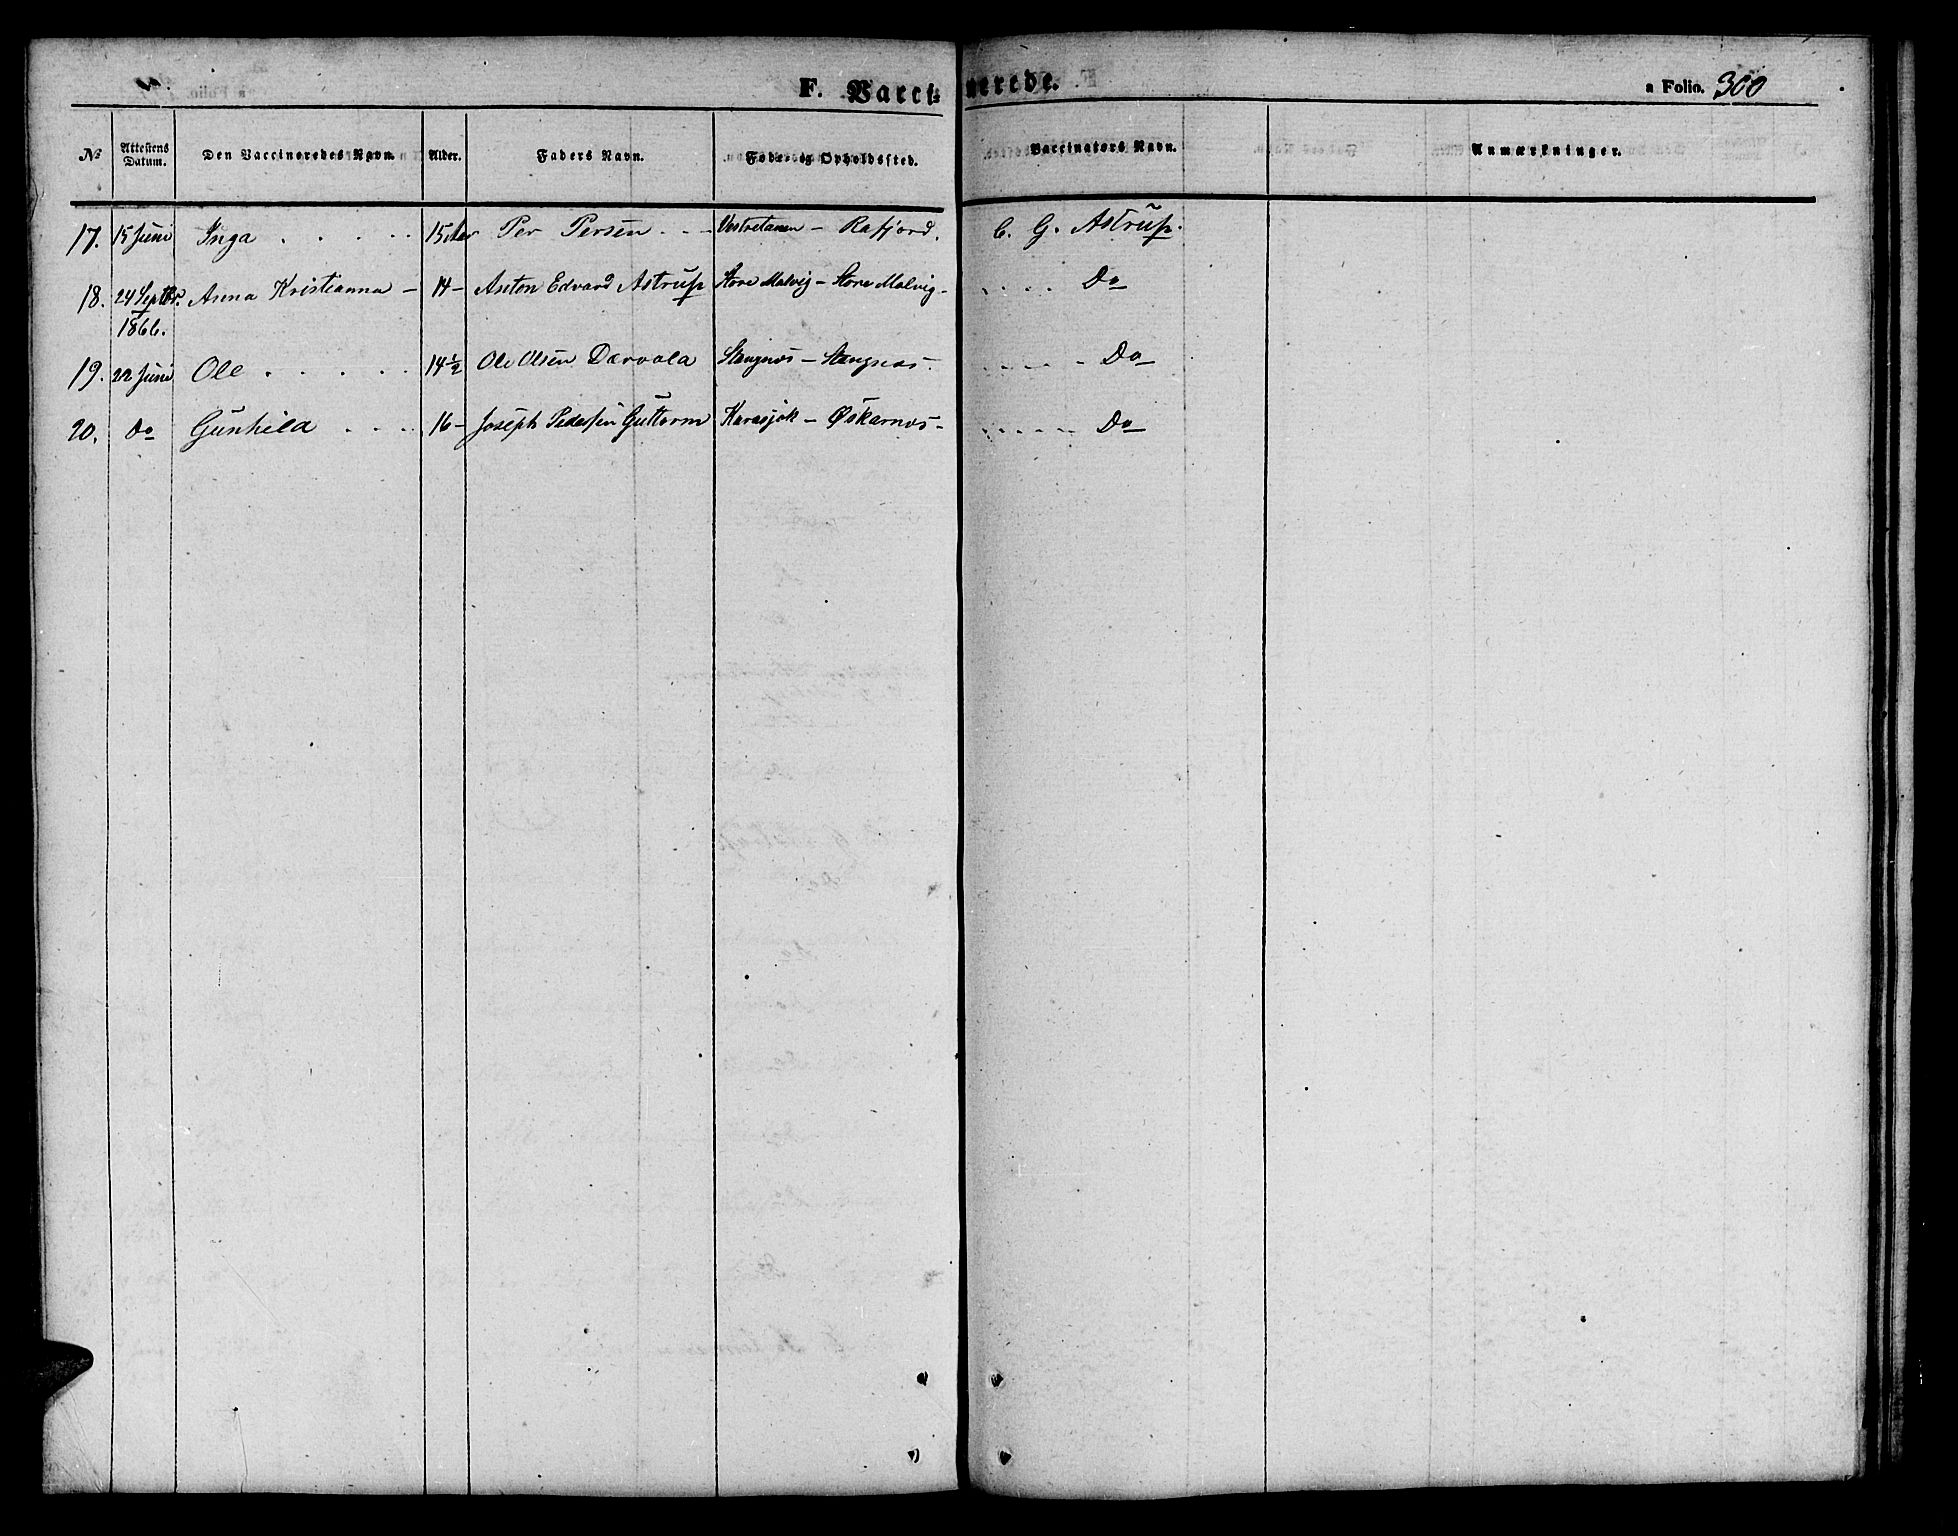 F. Vacci- nerede. a Folio. 300
No Attestens Datum. Den Vaccineredes Navn. Alder. Faders Navn. Føde- og Opholdssted. Vaccinators Navn. Anmærkninger.
17. 15 Juni Inga . . . . . 15 Per Persen . . - Vestretanen - Rafjord. C. G. Astrup.
18. 24 Septbr. Anna Kristianna - 14- Anton Edvard Astrup Store Molvig - Store Molvig - . . . . Do
1866.
19. 22 Juni Ole . . . . . 14½ Ole Olsen Stangnes - Stangnes - . . . . - Do
20. Do Gunhild . . . . 16- Joseph Pedersen Guttorm Karasjok - Oskarnes - - - - - - Do